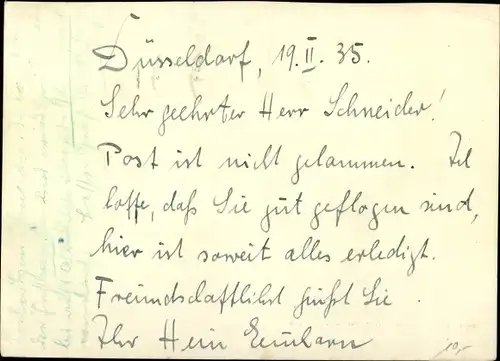 Düsseldorf, 19. II. 35.
Sehr geehrter Herr Schneider!
Post ist nicht gekommen. Ich
hoffe, daß Sie gut geflogen sind,
hier ist soweit alles erledigt.
Freundschaftlichst grüßt Sie
Ihr Hein
10,-